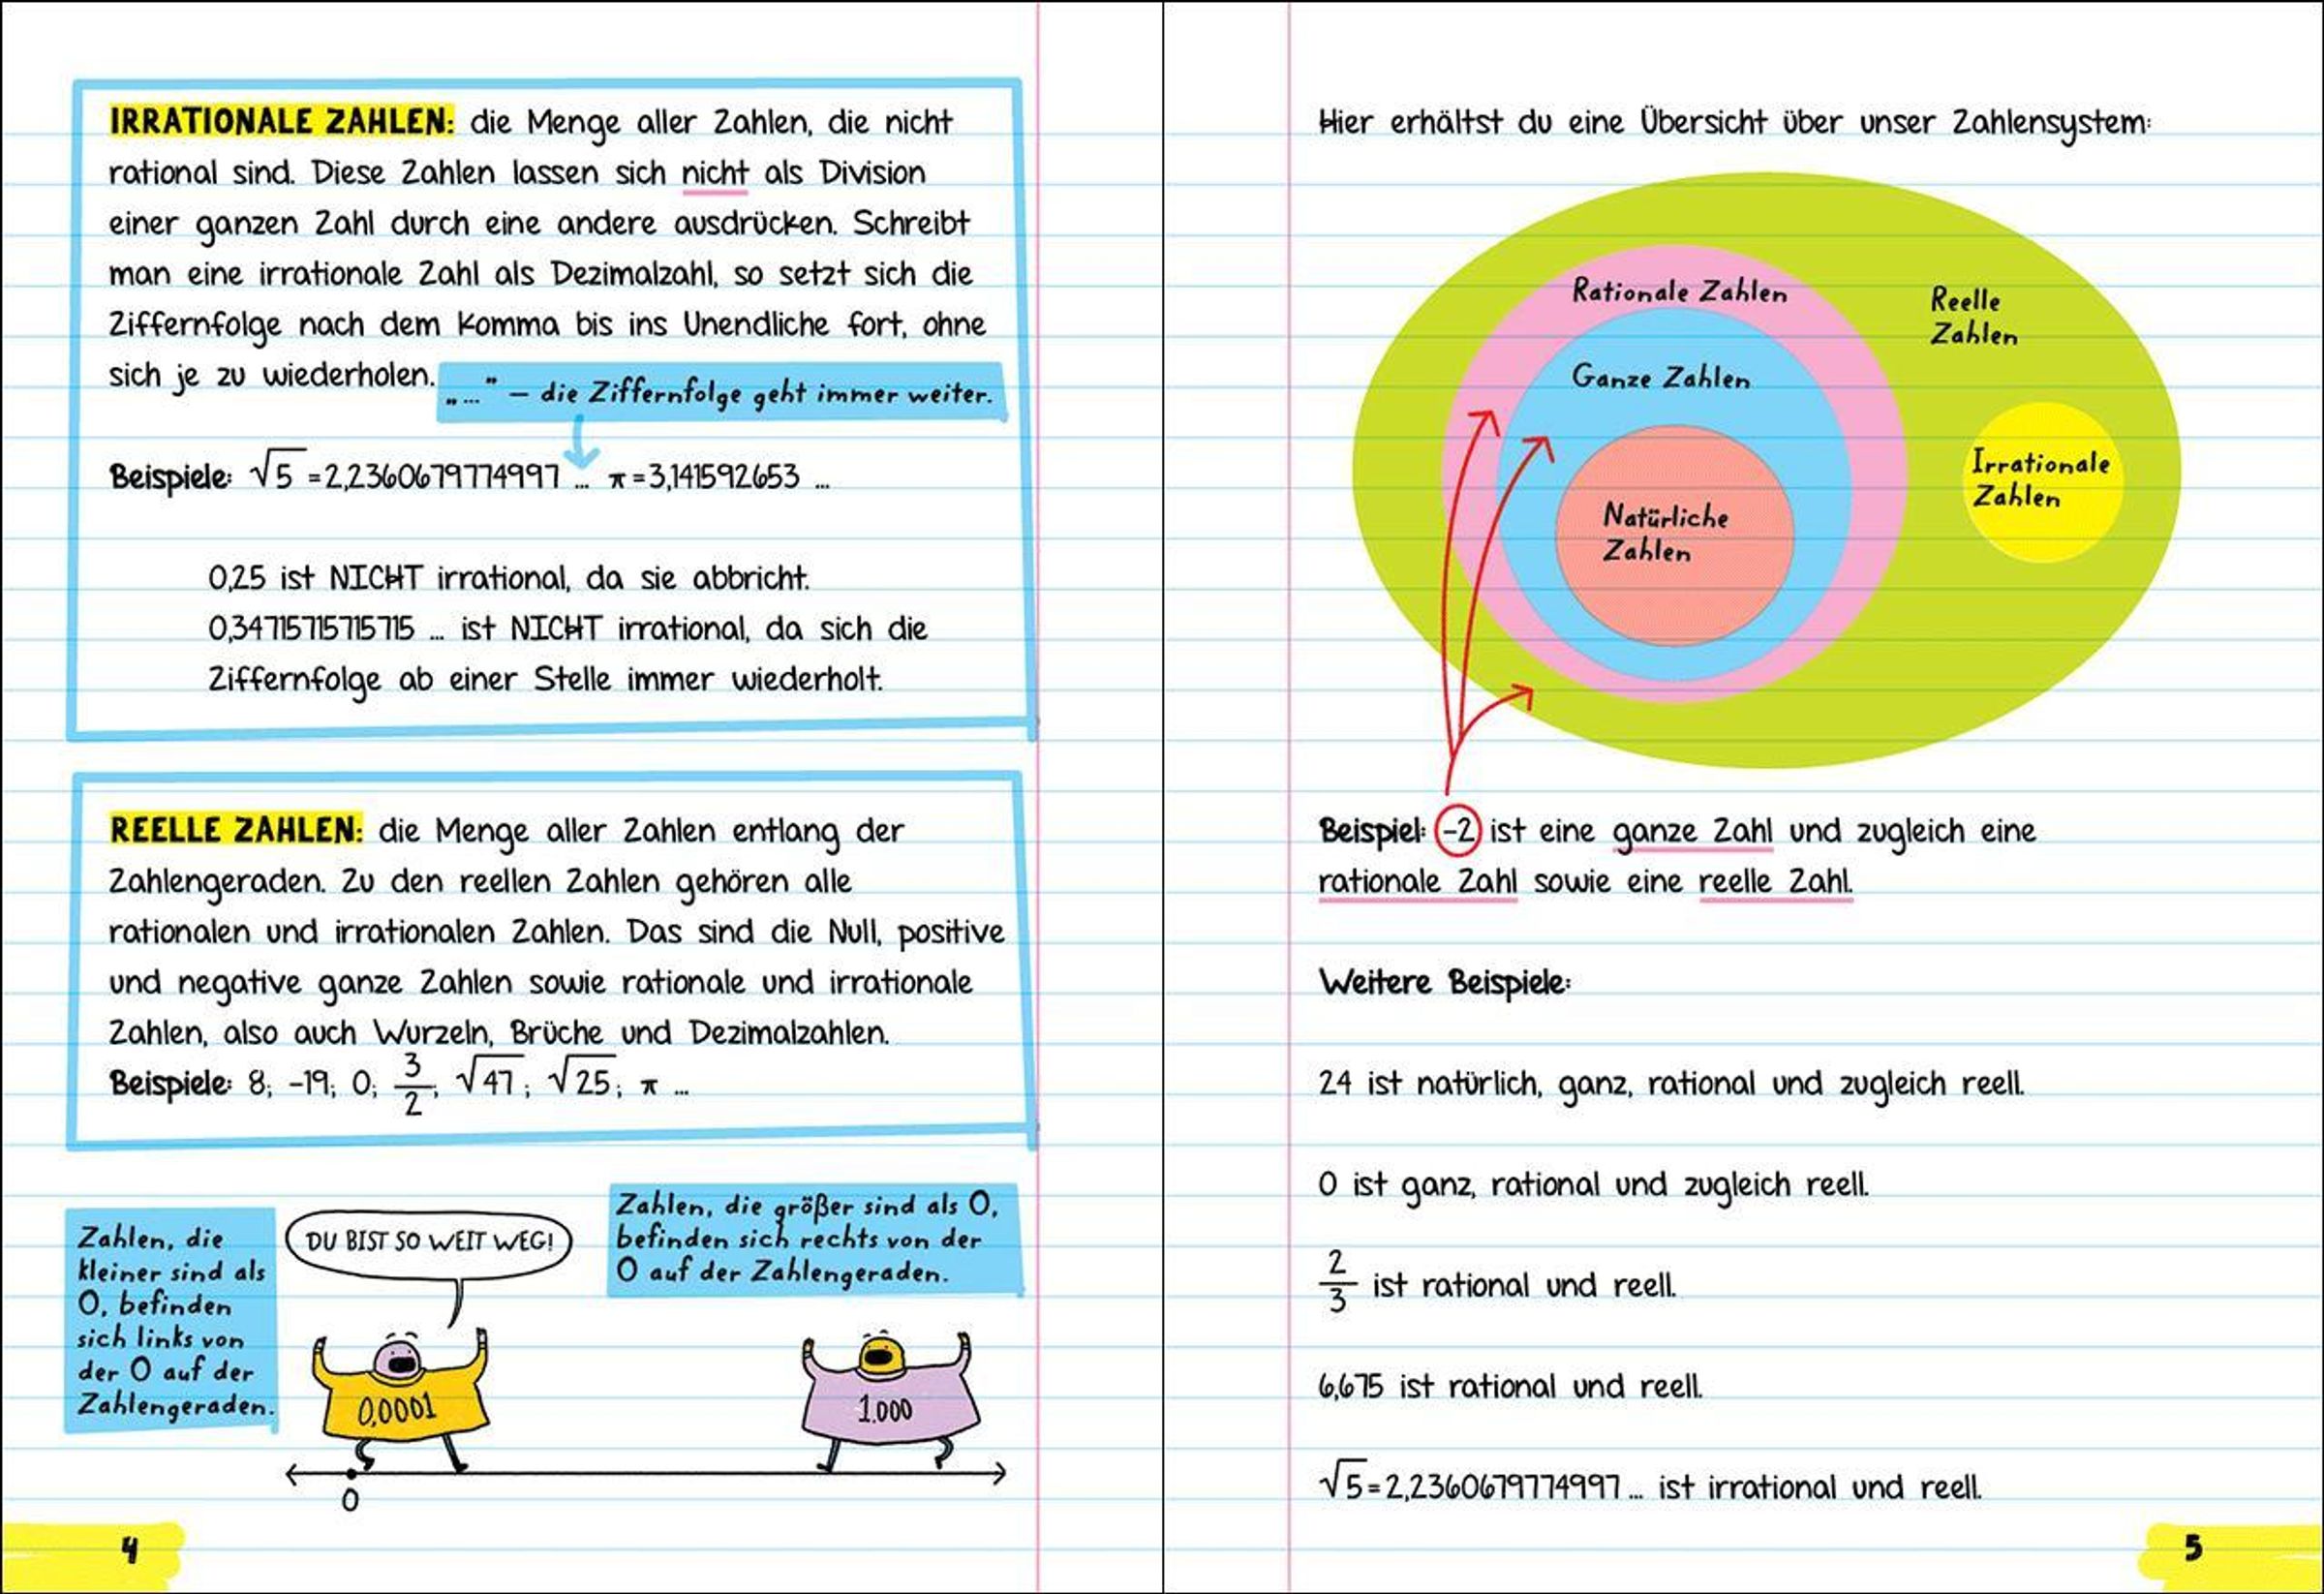 IRRATIONALE ZAHLEN: die Menge aller Zahlen, die nicht
rational sind. Diese Zahlen lassen sich nicht als Division
einer ganzen Zahl durch eine andere ausdrücken. Schreibt
man eine irrationale Zahl als Dezimalzahl, so setzt sich die
Ziffernfolge nach dem Komma bis ins Unendliche fort, ohne
sich je zu wiederholen.
„…“ – die Ziffernfolge geht immer weiter.
Beispiele: √5 = 2,2360679774997 … π = 3,141592653 …
0,25 ist NICHT irrational, da sie abbricht.
0,34715715715715 … ist NICHT irrational, da sich die
Ziffernfolge ab einer Stelle immer wiederholt.
REELLE ZAHLEN: die Menge aller Zahlen entlang der
Zahlengeraden. Zu den reellen Zahlen gehören alle
rationalen und irrationalen Zahlen. Das sind die Null, positive
und negative ganze Zahlen sowie rationale und irrationale
Zahlen, also auch Wurzeln, Brüche und Dezimalzahlen.
Beispiele: 8; -19; 0; 3/2; √47; √25; π …
Zahlen, die
kleiner sind als
0, befinden
sich links von
der 0 auf der
Zahlengeraden.
DU BIST SO WEIT WEG!
Zahlen, die größer sind als 0,
befinden sich rechts von der
0 auf der Zahlengeraden.
0,0001
1.000
0
4
Hier erhältst du eine Übersicht über unser Zahlensystem:
Rationale Zahlen
Reelle
Zahlen
Ganze Zahlen
Irrationale
Zahlen
Natürliche
Zahlen
Beispiel: -2 ist eine ganze Zahl und zugleich eine
rationale Zahl sowie eine reelle Zahl.
Weitere Beispiele:
24 ist natürlich, ganz, rational und zugleich reell.
0 ist ganz, rational und zugleich reell.
2/3 ist rational und reell.
6,675 ist rational und reell.
√5 = 2,2360679774997 … ist irrational und reell.
5